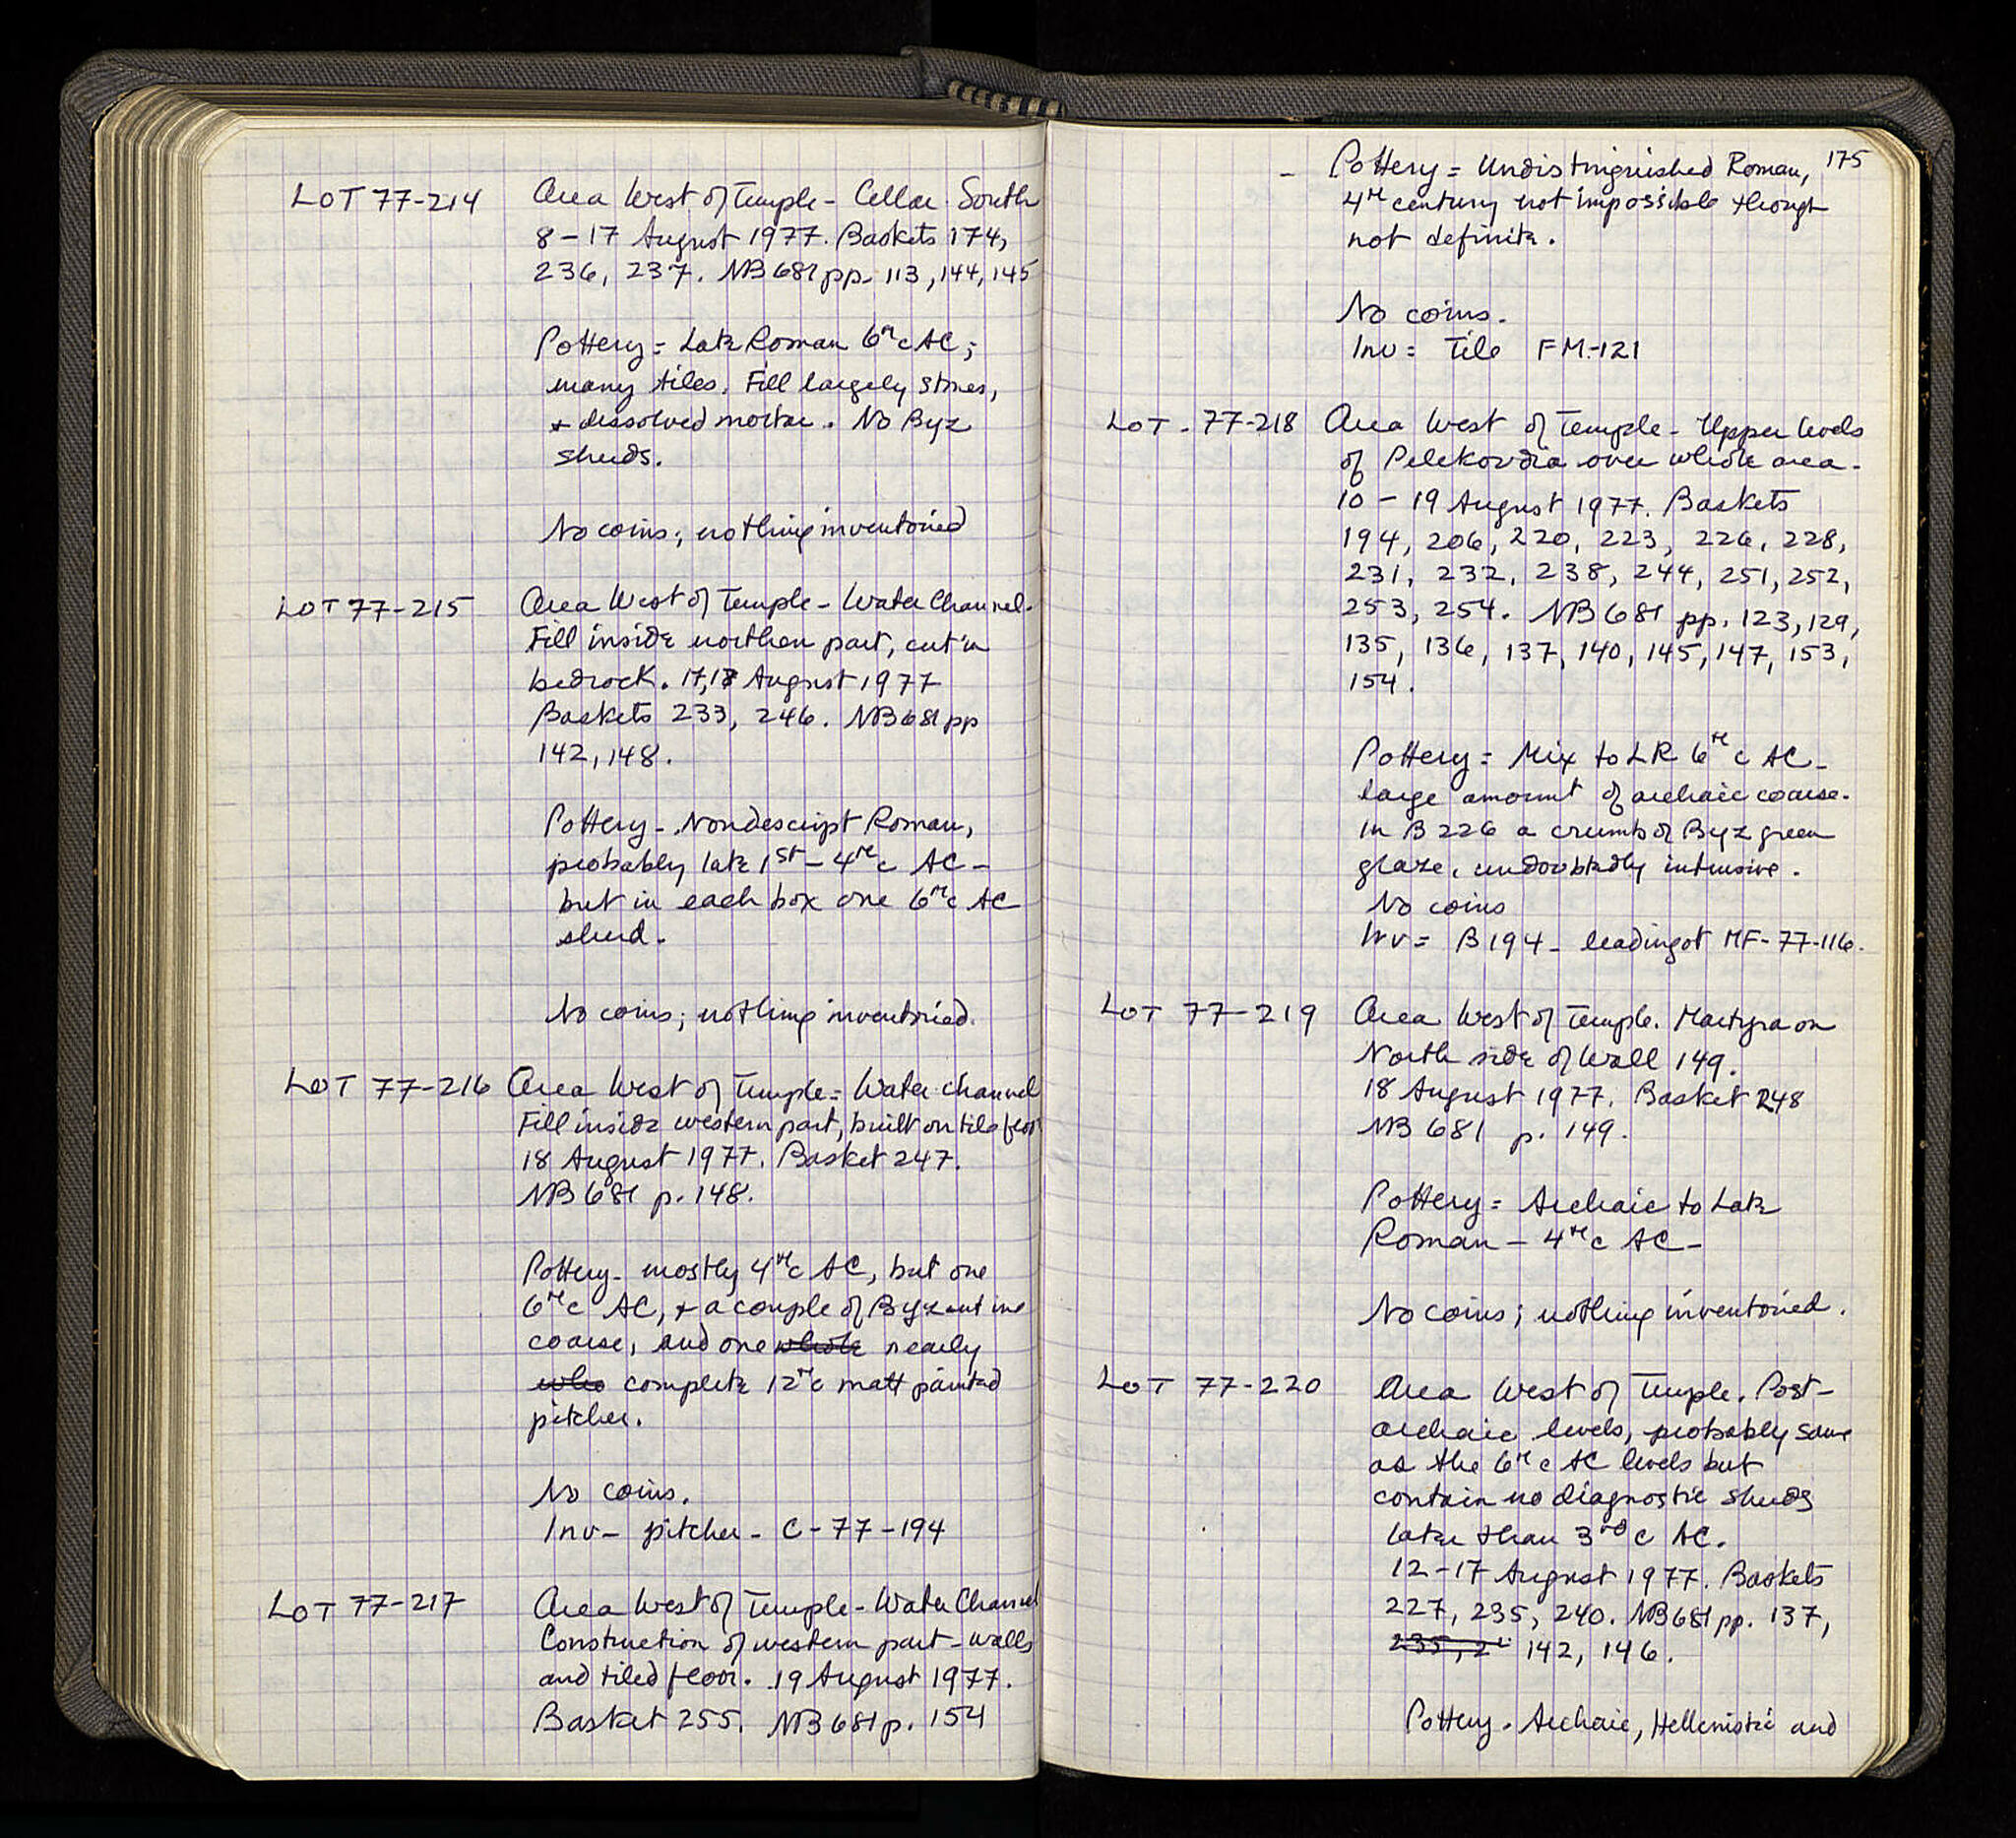 LOT 77-214 Area West of Temple - Cellar South
8-17 August 1977. Baskets 174,
236, 237. NB 681 pp. 113, 144, 145
Pottery = Late Roman 6th c AC;
many tiles. Fill largely stones,
+ dissolved mortar. No Byz
sherds.
No coins; nothing inventoried
LOT 77-215 Area West of Temple - Water Channel.
Fill inside northern part, cut in
bedrock. 17, 18 August 1977
Baskets 233, 246. NB 681 pp
142, 148.
Pottery - Nondescript Roman,
probably late 1st - 4th c AC -
but in each box one 6th c AC
sherd.
No coins; nothing inventoried.
LOT 77-216 Area West of Temple = Water channel
Fill inside western part, built on tile floor
18 August 1977. Basket 247.
NB 681 p. 148.
Pottery - mostly 4th c AC, but one
6th c AC, + a couple of Byzantine
coarse, and one whole nearly
who complete 12th c matt painted
pitcher.
No coins.
Inv - pitcher - C-77-194
LOT 77-217 Area West of Temple - Water Channel
Construction of western part - walls
and tiled floor. 19 August 1977.
Basket 255. NB 681 p. 154
175
- Pottery = Undistinguished Roman,
4th century not impossible though
not definite.
No coins.
Inv = Tile FM-121
LOT - 77-218 Area West of Temple - Upper levels
of Pelekoudia over whole area.
10 - 19 August 1977. Baskets
194, 206, 220, 223, 226, 228,
231, 232, 238, 244, 251, 252,
253, 254. NB 681 pp. 123, 129,
135, 136, 137, 140, 145, 147, 153,
154.
Pottery = Mix to LR 6th c AC -
large amount of archaic coarse.
In B 226 a crumb of Byz green
glaze, undoubtedly intrusive.
No coins
Inv = B 194 - lead ingot MF-77-116.
LOT 77-219 Area West of Temple. Martyra on
North side of Wall 149.
18 August 1977. Basket 248
NB 681 p. 149.
Pottery = Archaic to Late
Roman - 4th c AC -
No coins; nothing inventoried.
LOT 77-220 Area West of Temple. Post-
archaic levels, probably same
as the 6th c AC levels but
contain no diagnostic sherds
later than 3rd c AC.
12-17 August 1977. Baskets
227, 235, 240. NB 681 pp. 137,
235, 2 142, 146.
Pottery. Archaic, Hellenistic and